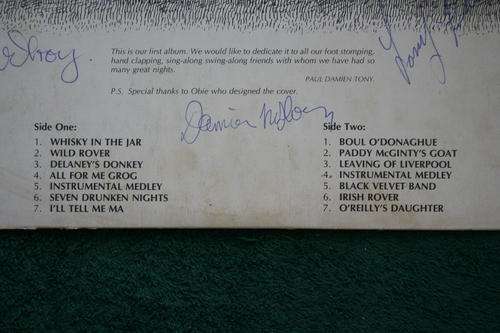 This is our first album. We would like to dedicate it to all our foot stomping,
hand clapping, sing-along swing-along friends with whom we have had so
many great nights.
PAUL DAMIEN TONY.
P.S. Special thanks to Obie who designed the cover.
Damien
Tony
Side One:
1. WHISKY IN THE JAR
2. WILD ROVER
3. DELANEY'S DONKEY
4. ALL FOR ME GROG
5. INSTRUMENTAL MEDLEY
6. SEVEN DRUNKEN NIGHTS
7. I'LL TELL ME MA
Side Two:
1. BOUL O'DONAGHUE
2. PADDY McGINTY'S GOAT
3. LEAVING OF LIVERPOOL
4. INSTRUMENTAL MEDLEY
5. BLACK VELVET BAND
6. IRISH ROVER
7. O'REILLY'S DAUGHTER